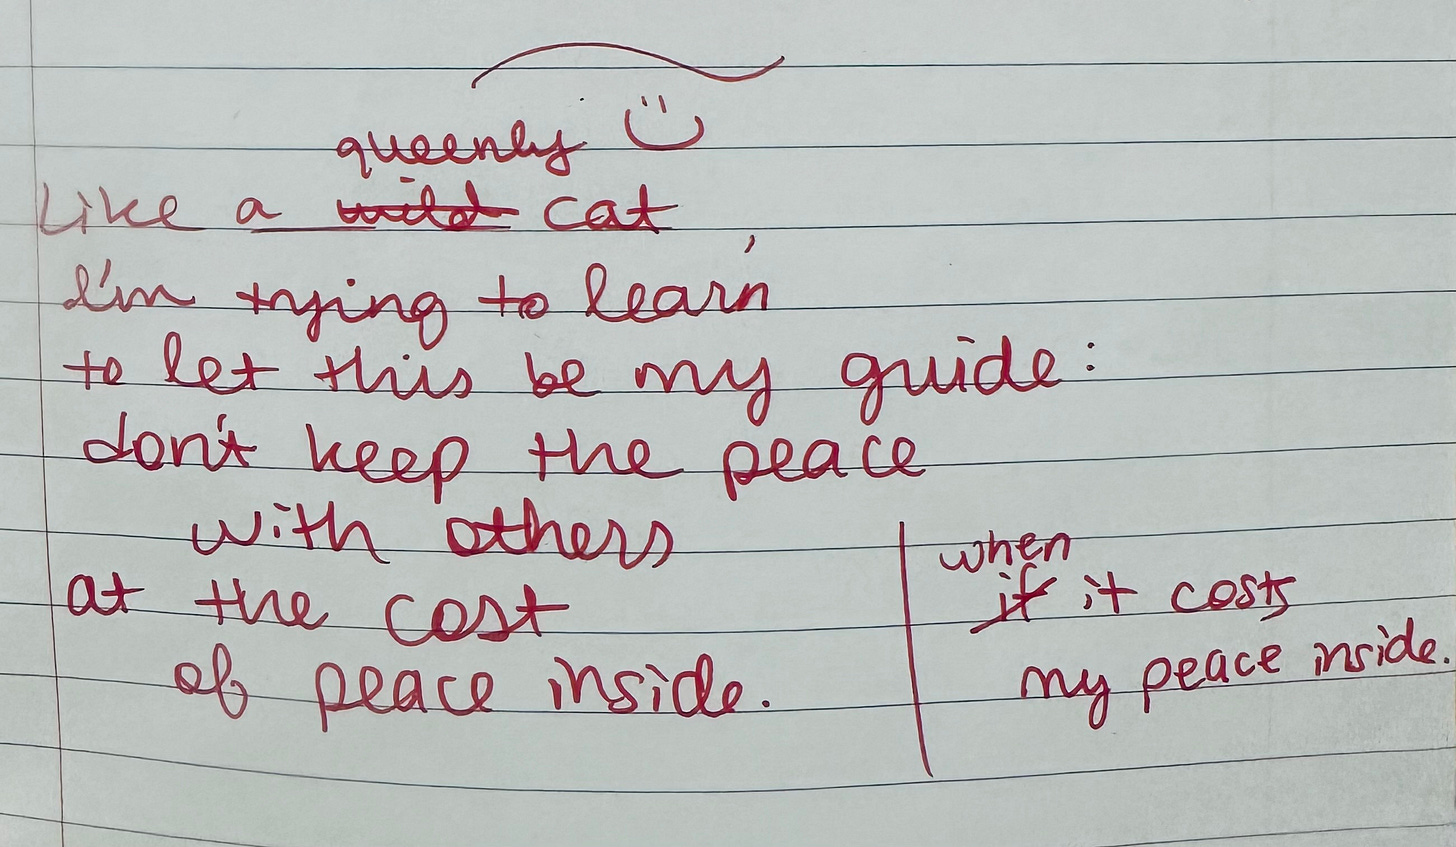 queenly
Like a wild cat
I'm trying to learn
to let this be my guide:
don't keep the peace
with others
at the cost
of peace inside.
when
if it costs
my peace inside.